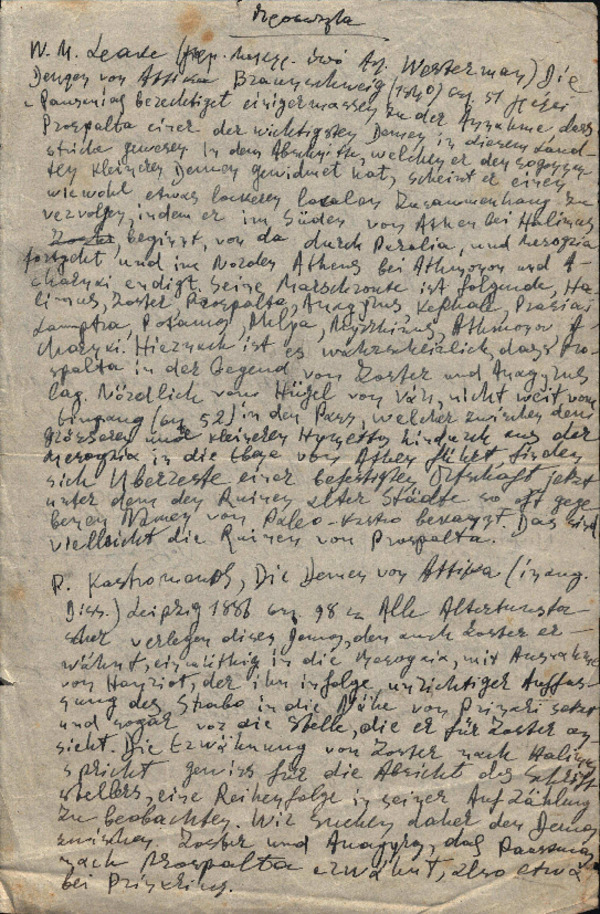 Προσπαλτα
W. M. Leake (γερμ. μεταφρ. ὑπό Ant. Westerman) Die
Demen von Attika Braunschweig (1840) σελ 51
Pausanias berechtiget einigermassen zu der Annahme dass
Prospalta einer der wichtigsten Demen in diesem Land-
striche gewesen In dem Abschnitte, welchen er den sogenann
ten kleineren Demen gewidmet hat, scheint er einen
wiewohl etwas lockeren localen Zusammenhang zu
vervolgen, indem er im Süden von Athen bei Halimus
beginnt, von da durch Paralia, und Mesogaia
fortgeht und im Norden Athens bei Athmonon und A-
charnai endigt. Seine Marschroute ist folgende, Ha-
limus, Zoster Prospalta, Anagyrus Kephale, Prasiai
Lamptra, Potamos, Phlya, Myrrhinus, Athmonon A-
charnai. Hiernach ist es wahrscheinlich, dass Pro-
spalta in der Gegend von Zoster und Anagyrus
lag. Nördlich vom Hügel von Vari, nicht weit vom
Eingang (σελ 52) in den Pass, welcher zwischen dem
grösseren und kleineren Hymettos hindurch aus der
Mesogaia in die Ebene von Athen führt, finden
sich Überreste einer befestigten Ortschaft jetzt
unter dem den Ruinen alter Städte so oft gege-
benen Namen von Paleo-Kastro bekannt. Das sind
vielleicht die Ruinen von Prospalta.
P. Kastromenos, Die Demen von Attika (inaug.
Diss.) Leipzig 1886 σελ 98 Alle Altertumsfor-
scher verlegen diesen Demos, den auch Zoster er-
wähnt, einmüthig in die Mesogaia, mit Ausnahme
von Hanriot, der ihn infolge unrichtiger Auffas-
sung des Strabo in die Nähe von Prinari setzt
und sogar vor die Stelle, die er für Zoster an-
sieht. Die Erwähnung von Zoster nach Halimus
spricht gewiss für die Absicht des Schrift-
stellers, eine Reihenfolge in seiner Aufzählung
zu beobachten. Wir suchen daher den Demos
zwischen Zoster und Anagyrus, das Pausanias
nach Prospalta erwähnt, also etwa
bei